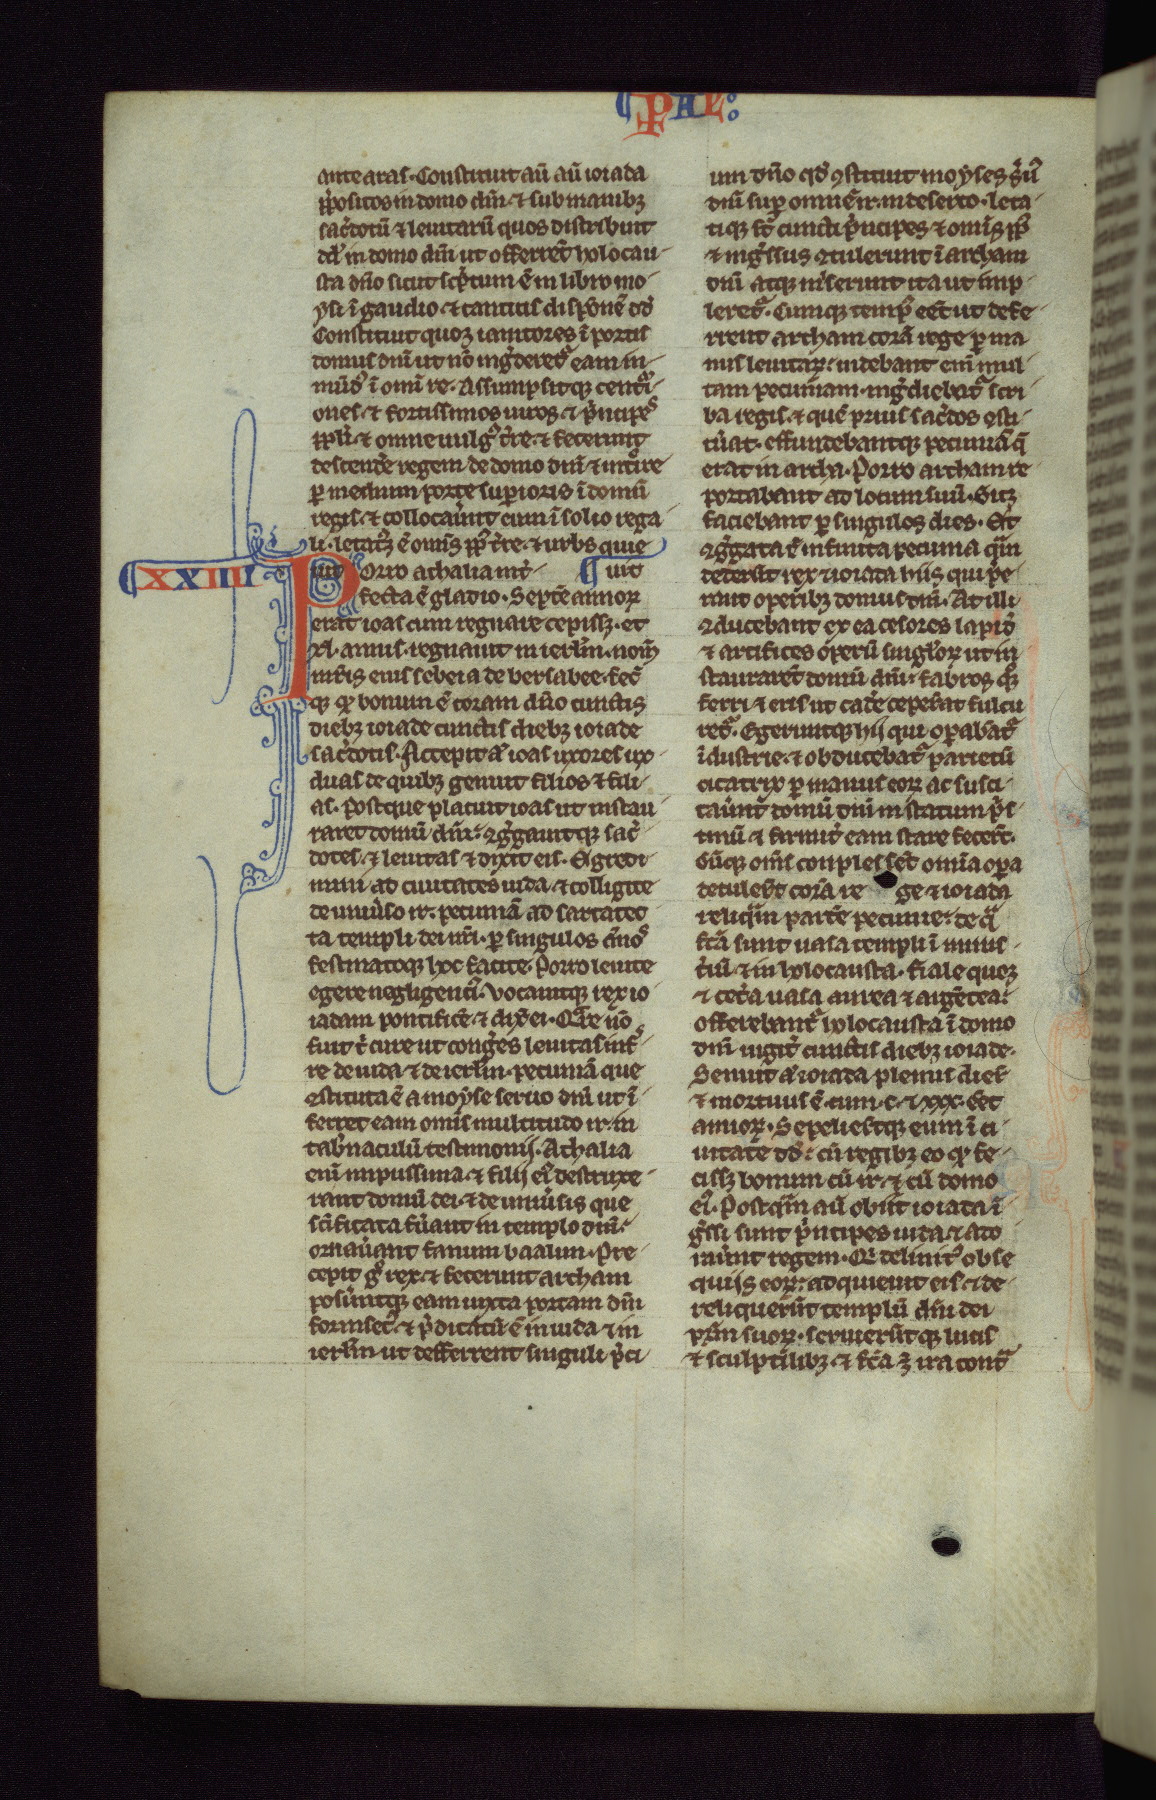 PAL:
ante aras. Constituit aũ aũ ioiada
p̃positos in domo dñi. ⁊ sub manibꝫ
sac̃dotũ ⁊ leuitarũ quos distribuit
dd̾ in domo dñi ut offerrẽt holocau-
sta dño sicut sc̾ptum ẽ in libro mo-
ysi ĩ gaudio. ⁊ canticis dispõnẽ dd̾
Constituit quoqꝫ ianitores ĩ portis
domus dñi ut nõ ing̾deretᷣ eam in-
mũd̾ ĩ om̃i re. Assumpsitqꝫ centᷣi-
ones. ⁊ fortissimos uiros. ⁊ p̾ncipes
pp̃li. ⁊ omne uulgꝰ t̃re. ⁊ fecerunt
descend̾e regem de domo dñi ⁊ int̾re
ꝑ medium porte suꝑioris ĩ domũ
regis. ⁊ collocau̾unt eum ĩ solio rega-
li. letatꝰqꝫ ẽ om̃is pp̃ls t̃re. ⁊ urbs quie
XXIIII Porro athalia int̾- ¶ uit
fecta ẽ gladio. Septẽ annoꝝ
erat ioas cum regnare cepissꝫ. et
xl. annis. regnauit in ierl̃m. nom̃
mr̃is eius sebeia de bersabee. fec̃
qꝫ qᷣ bonum ẽ coram dño cunctis
diebꝫ ioiade cunctis diebꝫ ioiade
sac̃dotis. Accepit aͣ ioas uxores ux
duas de quibꝫ genuit filios ⁊ fili-
as. Postque placuit ioas ut instau-
raret domũ dñi: ꝯg̾gauitqꝫ sac̃-
dotes. ⁊ leuitas ⁊ dixit eis. Egredi-
mini ad ciuitates iuda. ⁊ colligite
de uniu̾so ir̃. pecuniã ad sartatec-
ta templi dei ur̃i. ꝑ singulos ãnos
festinatoqꝫ hoc facite. Porro leuite
egere negligent̾. Vocauitqꝫ rex io-
iadam pontificẽ. ⁊ dix̾ ei. Qͣre nõ
fuit t̾ cure ut cong̾es leuitas inf̾-
re de iuda. ⁊ de ierl̃m. pecuniã que
ꝯstituta ẽ a moyse seruo dñi ut ĩ-
ferret eam om̃is multitudo ir̃. in
tab̾naculũ testimonij. Athalia
eni̾ impiissima. ⁊ filij eiꝰ destruxe-
rant domũ dei. ⁊ de uniu̾sis que
sc̃ificata fu̾ant in templo dñi.
ornau̾ant fanum baalim. Pre-
cepit g̾ rex. ⁊ fecerunt archam
posu̾ntqꝫ eam iuxta portam dñi
forinsec̾. ⁊ p̾dicatũ ẽ in iuda ⁊ in
ierl̃m ut defferrent singuli p̾ci-
um dño qd̾ ꝯstituit moyses s̾uꝰ
dñi suꝑ omnẽ ir̃. in deserto. leta-
tiqꝫ st̃ cuncti p̾ncipes ⁊ om̃is pp̃ls
⁊ ing̾ssus ꝯtulerunt ĩ archam
dñi atqꝫ mis̾erunt ita ut imp-
leretᷣ. Cumqꝫ tempꝰ eẽt ut defe-
rrent archam corã rege ꝑ ma-
nus leuitaꝝ: uidebant eni̾ mul-
tam pecuniam. ing̾diebatᷣ scri-
ba regis. ⁊ quẽ prius sac̃dos ꝯsti-
tu̾at. effundebantqꝫ pecuniã q̃
erat in archa. Porro archam re-
portabant ad locum suũ. Sicqꝫ
faciebant ꝑ singulos dies. Et
ꝯg̾gata ẽ infinita pecunia qͣm
dederũt rex ⁊ ioiada hiis qui p̾e-
rant operibꝫ domus dñi. At illi
ꝯducebant ex ea cesores lapid̾
⁊ artifices operũ singl̾oꝝ ut in-
staurarẽt domũ dñi: fabros qᷣꝫ
ferri ⁊ eris ut cad̾e cep̾at fulci-
retᷣ. Egeruntqꝫ hii qui oꝑabatᷣ
ĩdustrie. ⁊ obducebatᷣ parietũ
cicatrix ꝑ manus eoꝝ ac susci-
tau̾unt domũ dñi in statum p̾s-
tinũ ⁊ firmit̾ eam stare fecer̾t.
Cũqꝫ om̃is conplessẽt om̃ia oꝑa
detuler̾t corã re ge ⁊ ioiada
reliqͣm partẽ pecunie. de qͣ
fc̃a sunt uasa templi ĩ minis-
t̾iũ. ⁊ in holocausta. fiale quoqꝫ
⁊ cet̾a uasa aurea ⁊ argẽtea:
offerebantᷣ holocausta ĩ domo
dñi iugit̾ cunctis diebꝫ ioiade.
Senuit aͣ ioiada plenus dieꝝ
⁊ mortuus ẽ cum .c. ⁊ xxx. eẽt
annoꝝ. Sepelieꝝtqꝫ eum ĩ ci-
uitate dd̾: cũ regibꝫ eo qᷣ fe-
cissꝫ bonum cũ ir̃. ⁊ cũ domo
eiꝰ. Postqͣm aũ obiit ioiada ĩ-
g̾ssi sunt p̾ncipes iuda. ⁊ ado-
rau̾unt regem. Qi delinitꝰ obse-
quijs eoꝝ: adquieuit eis. ⁊ de-
reliquerũt templũ dñi dei
pr̃m suoꝝ. seruierũtqꝫ lucis
⁊ sculptilibꝫ. ⁊ fc̃a ẽ ira contᷓ